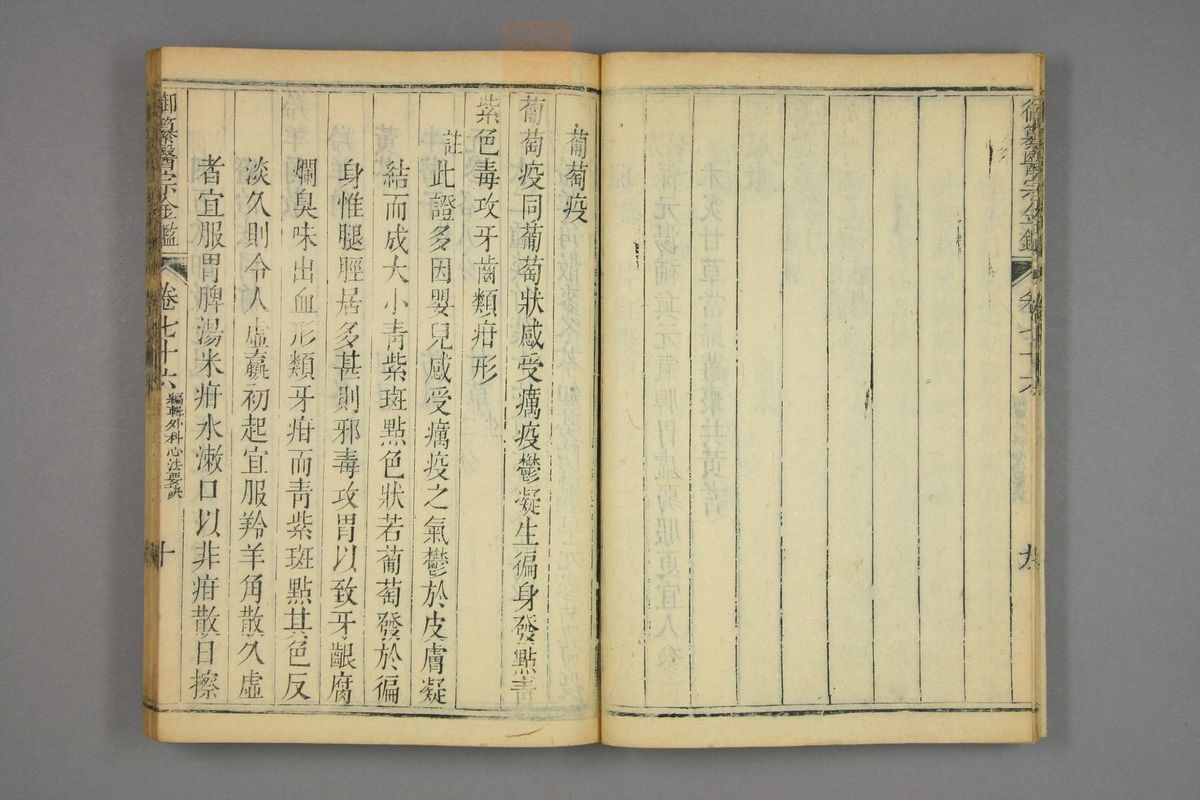 御纂醫宗金鑑
卷七十六
九
葡萄疫
葡萄疫同葡萄狀感受癘疫鬱凝生徧身發點靑
紫色毒攻牙齒類疳形
註此證多因嬰兒感受癘疫之氣鬱於皮膚凝
結而成大小靑紫斑點色狀若葡萄發於徧
身惟腿脛居多甚則邪毒攻胃以致牙齦腐
爛臭味出血形類牙疳而靑紫斑點其色反
淡久則令人虛羸初起宜服羚羊角散久虛
者宜服胃脾湯米疳水漱口以非疳散日擦
御纂醫宗金鑑
卷七十六
編輯外科心法要訣
十